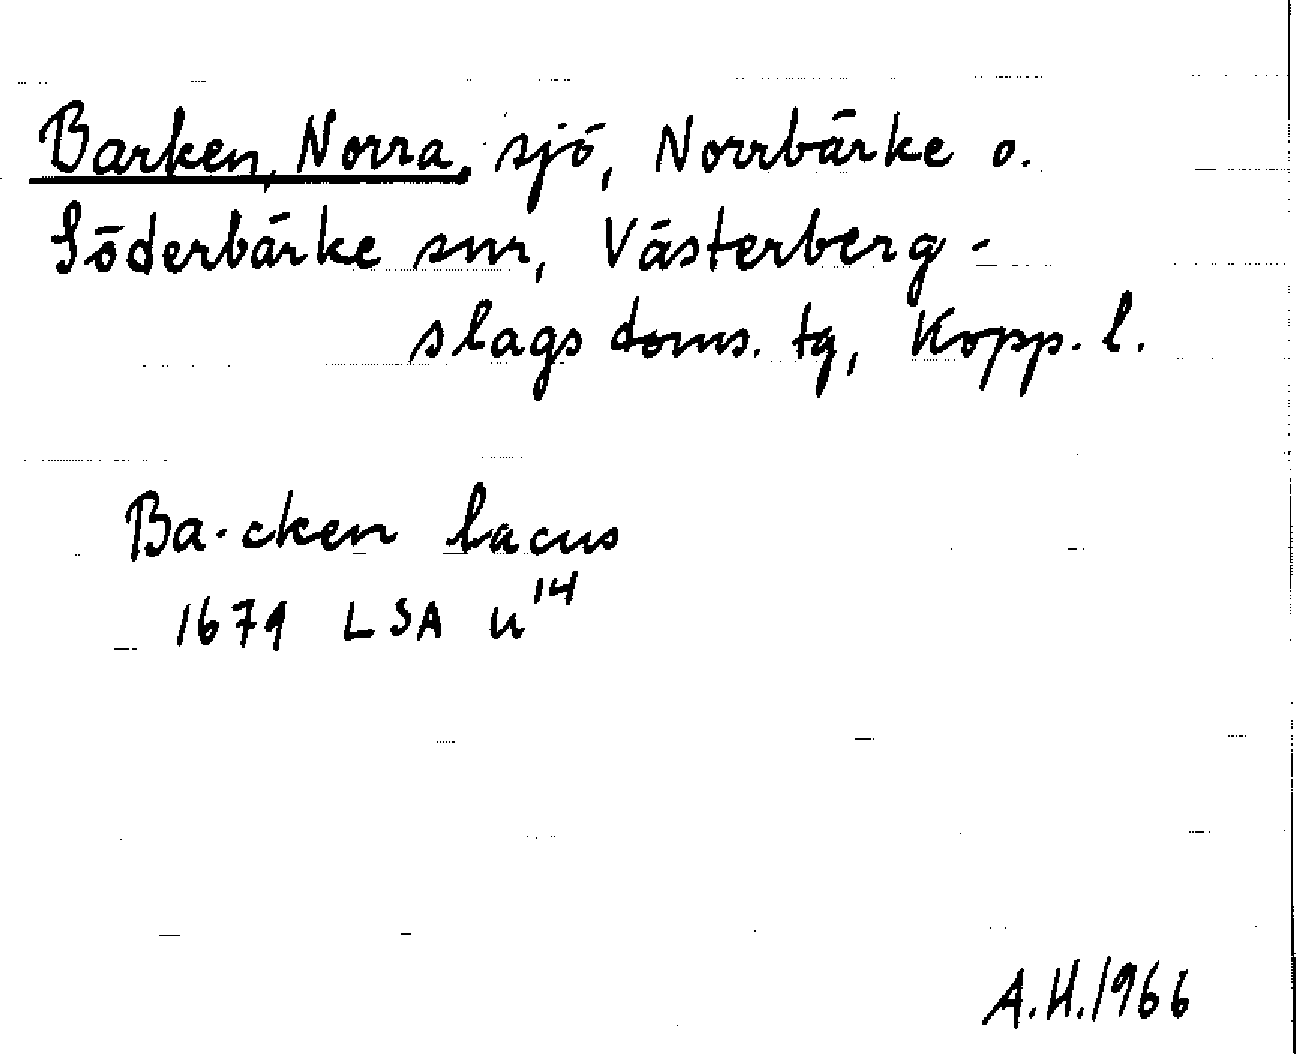 Barken, Norra, sjö, Norrbärke o.
Söderbärke snr, Västerberg-
slags doms. tg, Kopp. l.
Ba-cken lacus
1679 LSA U14
A.H.1966